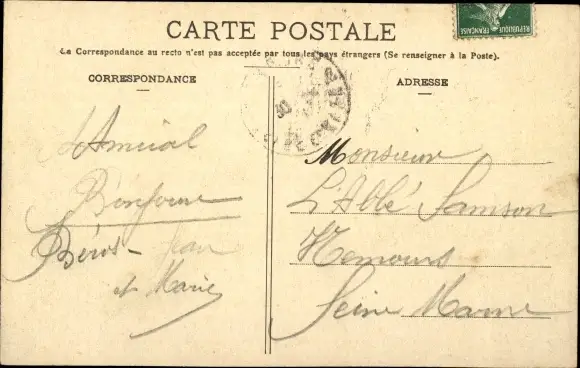 CARTE POSTALE
La Correspondance au recto n'est pas acceptée par tous les pays étrangers (Se renseigner à la Poste).
REPUBLIQUE FRANÇAISE
CORRESPONDANCE
Amical
Bonjour
Jean
et Marie
ADRESSE
Monsieur
L'Abbé Samson
Nemours
Seine Marne